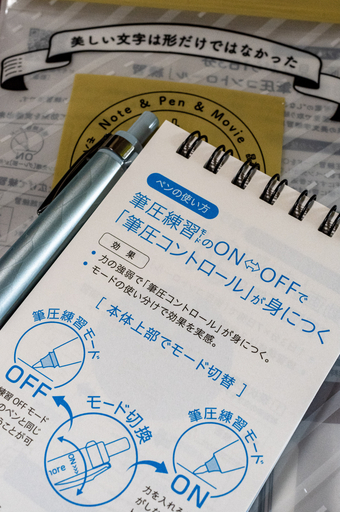 美しい文字は形だけではなかった
Note & Pen & Movie
ペンの使い方
筆圧練習モードのON⇔OFFで
「筆圧コントロール」が身につく
効果
・力の強弱で「筆圧コントロール」が身につく。
・モードの使い分けで効果を実感。
[ 本体上部でモード切替 ]
筆圧練習モード
OFF
モード切換
ON
筆圧練習モード
ON
練習OFFモード
のペンと同じ
うことが可
力を入れる